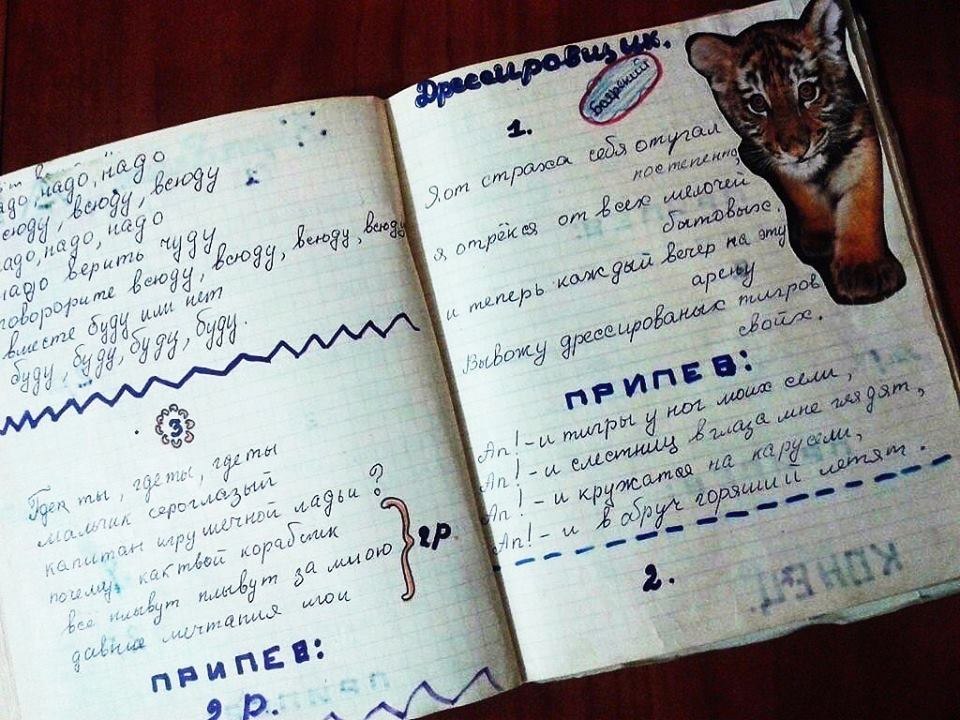 надо, надо
всюду, всюду, всюду
надо, надо, надо
надо верить чуду
говорорите всюду, всюду, всюду, всюду
вместе буду или нет
буду, буду, буду, буду.
3
ты, где ты, где ты
мальчик сероглазый
капитан игрушечной ладьи?
почему, как твой кораблик
все плывут плывут за мною
давние мечтания мои
2р.
ПРИПЕВ:
2 р.
Дрессировщик.
Боярский
1.
Я от страха себя отугал
постепенно,
я отрёкся от всех мелочей
бытовых.
и теперь каждый вечер на эту
арену
Вывожу дрессированых тигров
свойх.
ПРИПЕВ:
Ап! - и тигры у ног моих сели,
Ап! - и слестниц в глаза мне глядят,
Ап! - и кружатся на карусели,
Ап! - и в обруч горящий летят.
2.
КОНЕЦ